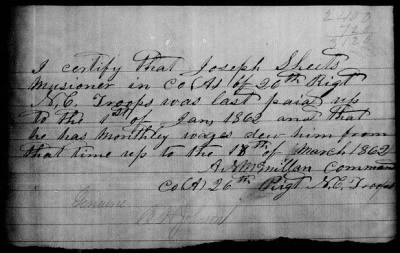 2400
I certify that Joseph Sheets
Musioner in Co (A) of 26th Rigt
N.C. Troops was last paid up
to the 1st of Jan 1862 and that
he has monthly wages dew him from
that time up to the 18th of March 1862
A McMillan Command
Co (A) 26th Rigt N.C. Troops
Genuine